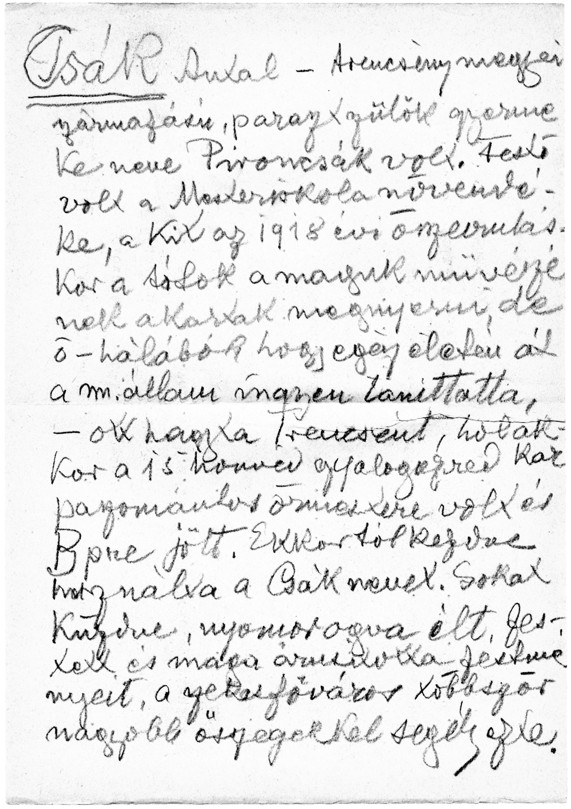 Csák Antal – Trencsénymegyei
származású, parasztszülők gyerme
ke neve Pironcsák volt. Festő
volt a Mesteriskola növendé-
ke, a kit az 1918 évi őszevulás.
kor a tótok a maguk művészé
nek akartak megnyerni, de
ő – hálából hogy egész életén át
a m. állam ingyen taníttatta,
– ott hagyta Trencsént, hol ak-
kor a 15 honvéd gyalogezred kar
paszomántos őrmestere volt és
Bpre jött. Ekkortol kezdve
használta a Csák nevet. Sokat
küzdve, nyomorogva élt, fes-
tett és maga árusította festmé
nyeit, a székesfőváros többször
nagyobb öszegekkel segélyezte.